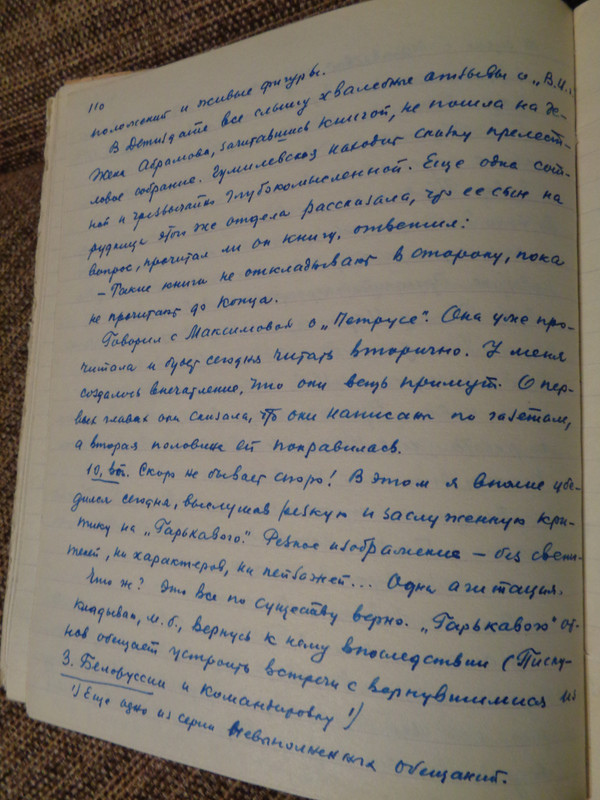 110
положений и живые фигуры.
В Детиздате все слышу хвалебные отзывы о „В.И."
Жена Абрамова, зачитавшись книгой, не пошла на де-
ловое собрание. Гумилевская находит сказку прелест-
ной и чрезвычайно глубокомысленной. Еще одна сот-
рудница этого же отдела рассказала, что ее сын на
вопрос, прочитал ли он книгу, ответил:
– Такие книги не откладывают в сторону, пока
не прочитают до конца.
Говорил с Максимовой о „Петрусе". Она уже про-
читала и будет сегодня читать вторично. У меня
создалось впечатление, что они вещь примут. О пер-
вых главах она сказала, что они написаны по газетам,
а вторая половина ей понравилась.
10, вт. Скоро не бывает споро! В этом я вполне убе-
дился сегодня, выслушав резкую и заслуженную кри-
тику на „Гарькавого". Резкое изображение – без
ни характеров, ни пейзажей... Одна агитация.
Что ж? Это все по существу верно. „Гарькавого" от-
кладываю, м.б., вернусь к нему впоследствии (Писку-
нов обещает устроить встречи с вернувшимися из
З. Белоруссии и командировку ¹)
¹) Еще одно из серии невыполненных обещаний.